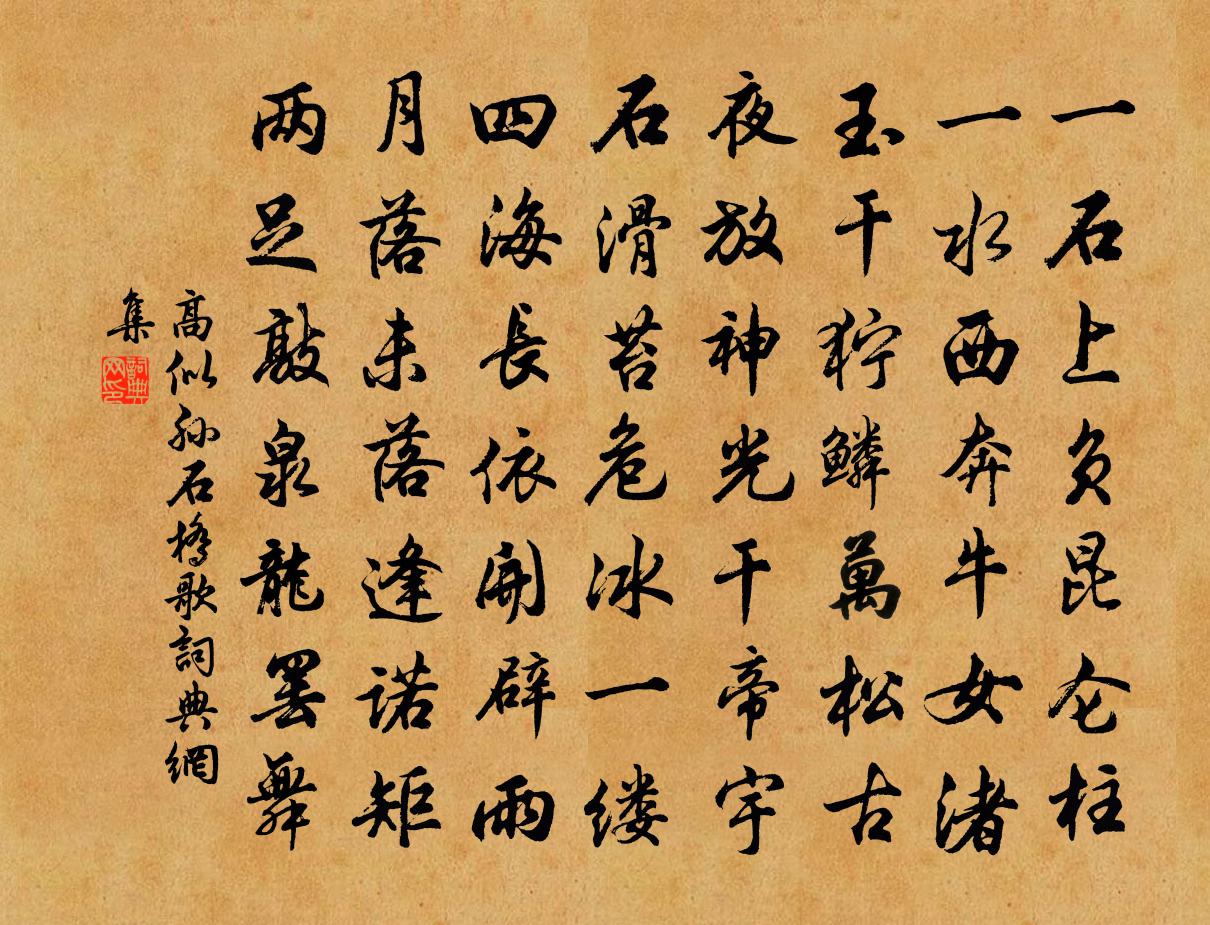 一石上负昆仑柱
一水西奔牛女渚
玉干狞鳞萬松古
夜放神光干帝宇
石滑苔危冰一缕
四海長依開辟雨
月落未落逢诺矩
两足敲泉龍罢舞
高似孙石橋歌詞典網
集
詞典网印